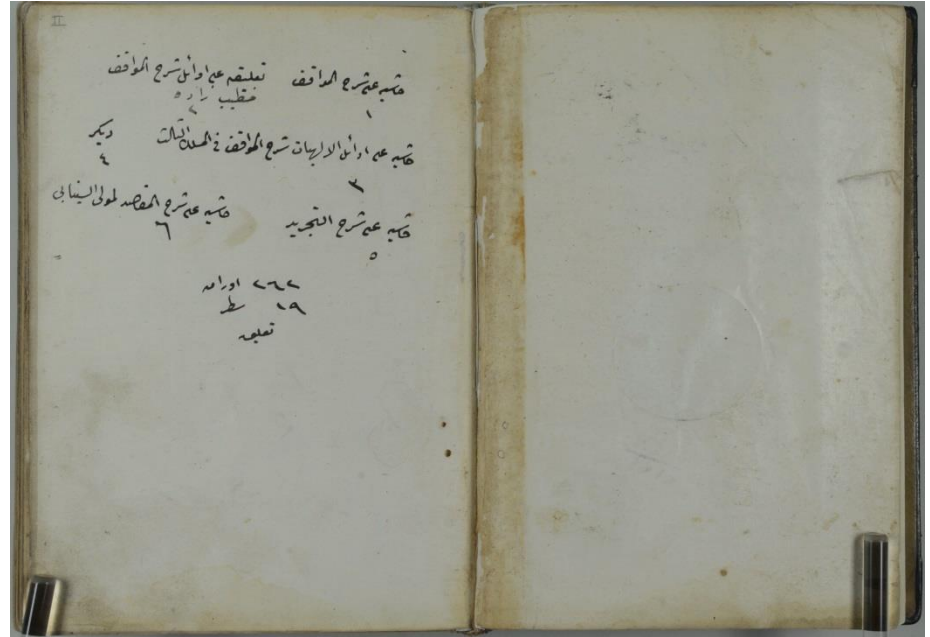 II
حاشیه علی شرح المواقف تعلیقه علی اوائل شرح المواقف
خطیب زاده
١ ٢
حاشیه علی اوائل الالهیات شرح المواقف فی المسلك الثالث دیکر
٣ ٤
حاشیه علی شرح التجرید حاشیه علی شرح المقاصد لمولی السینابی
٥ ٦
٢٦٢ اوراق
١٩ سطر
تعلیق